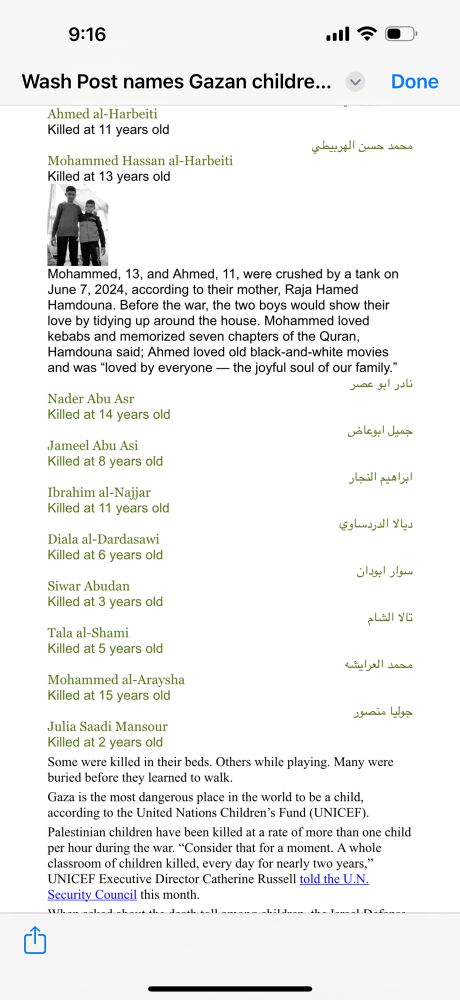 9:16
Wash Post names Gazan childre...
Done
Ahmed al-Harbeiti
Killed at 11 years old
محمد حسن الهربيطي
Mohammed Hassan al-Harbeiti
Killed at 13 years old
Mohammed, 13, and Ahmed, 11, were crushed by a tank on
June 7, 2024, according to their mother, Raja Hamed
Hamdouna. Before the war, the two boys would show their
love by tidying up around the house. Mohammed loved
kebabs and memorized seven chapters of the Quran,
Hamdouna said; Ahmed loved old black-and-white movies
and was “loved by everyone — the joyful soul of our family.”
نادر ابو عصر
Nader Abu Asr
Killed at 14 years old
جميل ابوعاض
Jameel Abu Asi
Killed at 8 years old
ابراهيم النجار
Ibrahim al-Najjar
Killed at 11 years old
ديالا الدردساوي
Diala al-Dardasawi
Killed at 6 years old
سوار ابودان
Siwar Abudan
Killed at 3 years old
تالا الشام
Tala al-Shami
Killed at 5 years old
محمد العرايشه
Mohammed al-Araysha
Killed at 15 years old
جوليا منصور
Julia Saadi Mansour
Killed at 2 years old
Some were killed in their beds. Others while playing. Many were
buried before they learned to walk.
Gaza is the most dangerous place in the world to be a child,
according to the United Nations Children’s Fund (UNICEF).
Palestinian children have been killed at a rate of more than one child
per hour during the war. “Consider that for a moment. A whole
classroom of children killed, every day for nearly two years,”
UNICEF Executive Director Catherine Russell told the U.N.
Security Council this month.
When asked about the death toll among children, the Israel Defense